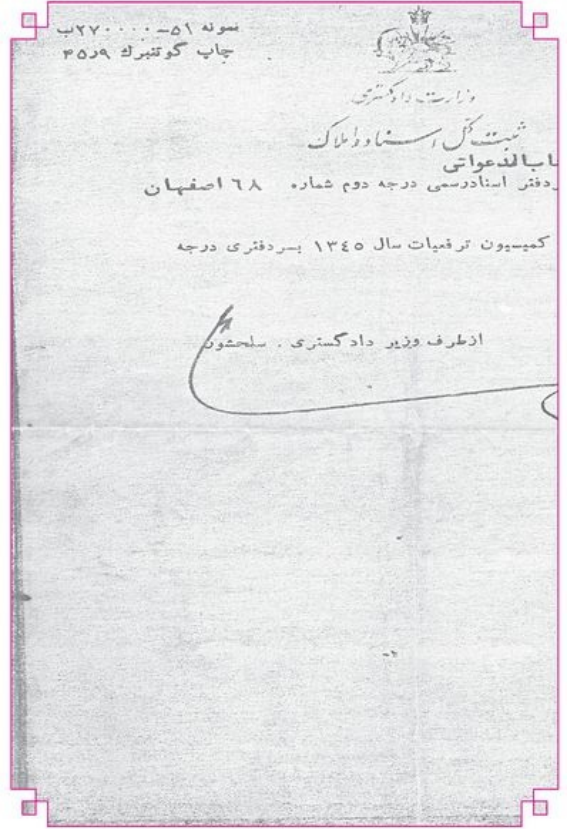 نمونه ۵۱-۲۷۰۰۰۰ب
چاپ گوتنبرك ۴۵ر۹
وزارت دادگستری
ثبت کل اسناد و املاک
دفتر اسنادرسمی درجه دوم شماره ٦٨ اصفهان
کمیسیون ترفیعات سال ١٣٤٥ بسردفتری درجه
ازطرف وزیر دادگستری . سلحشور